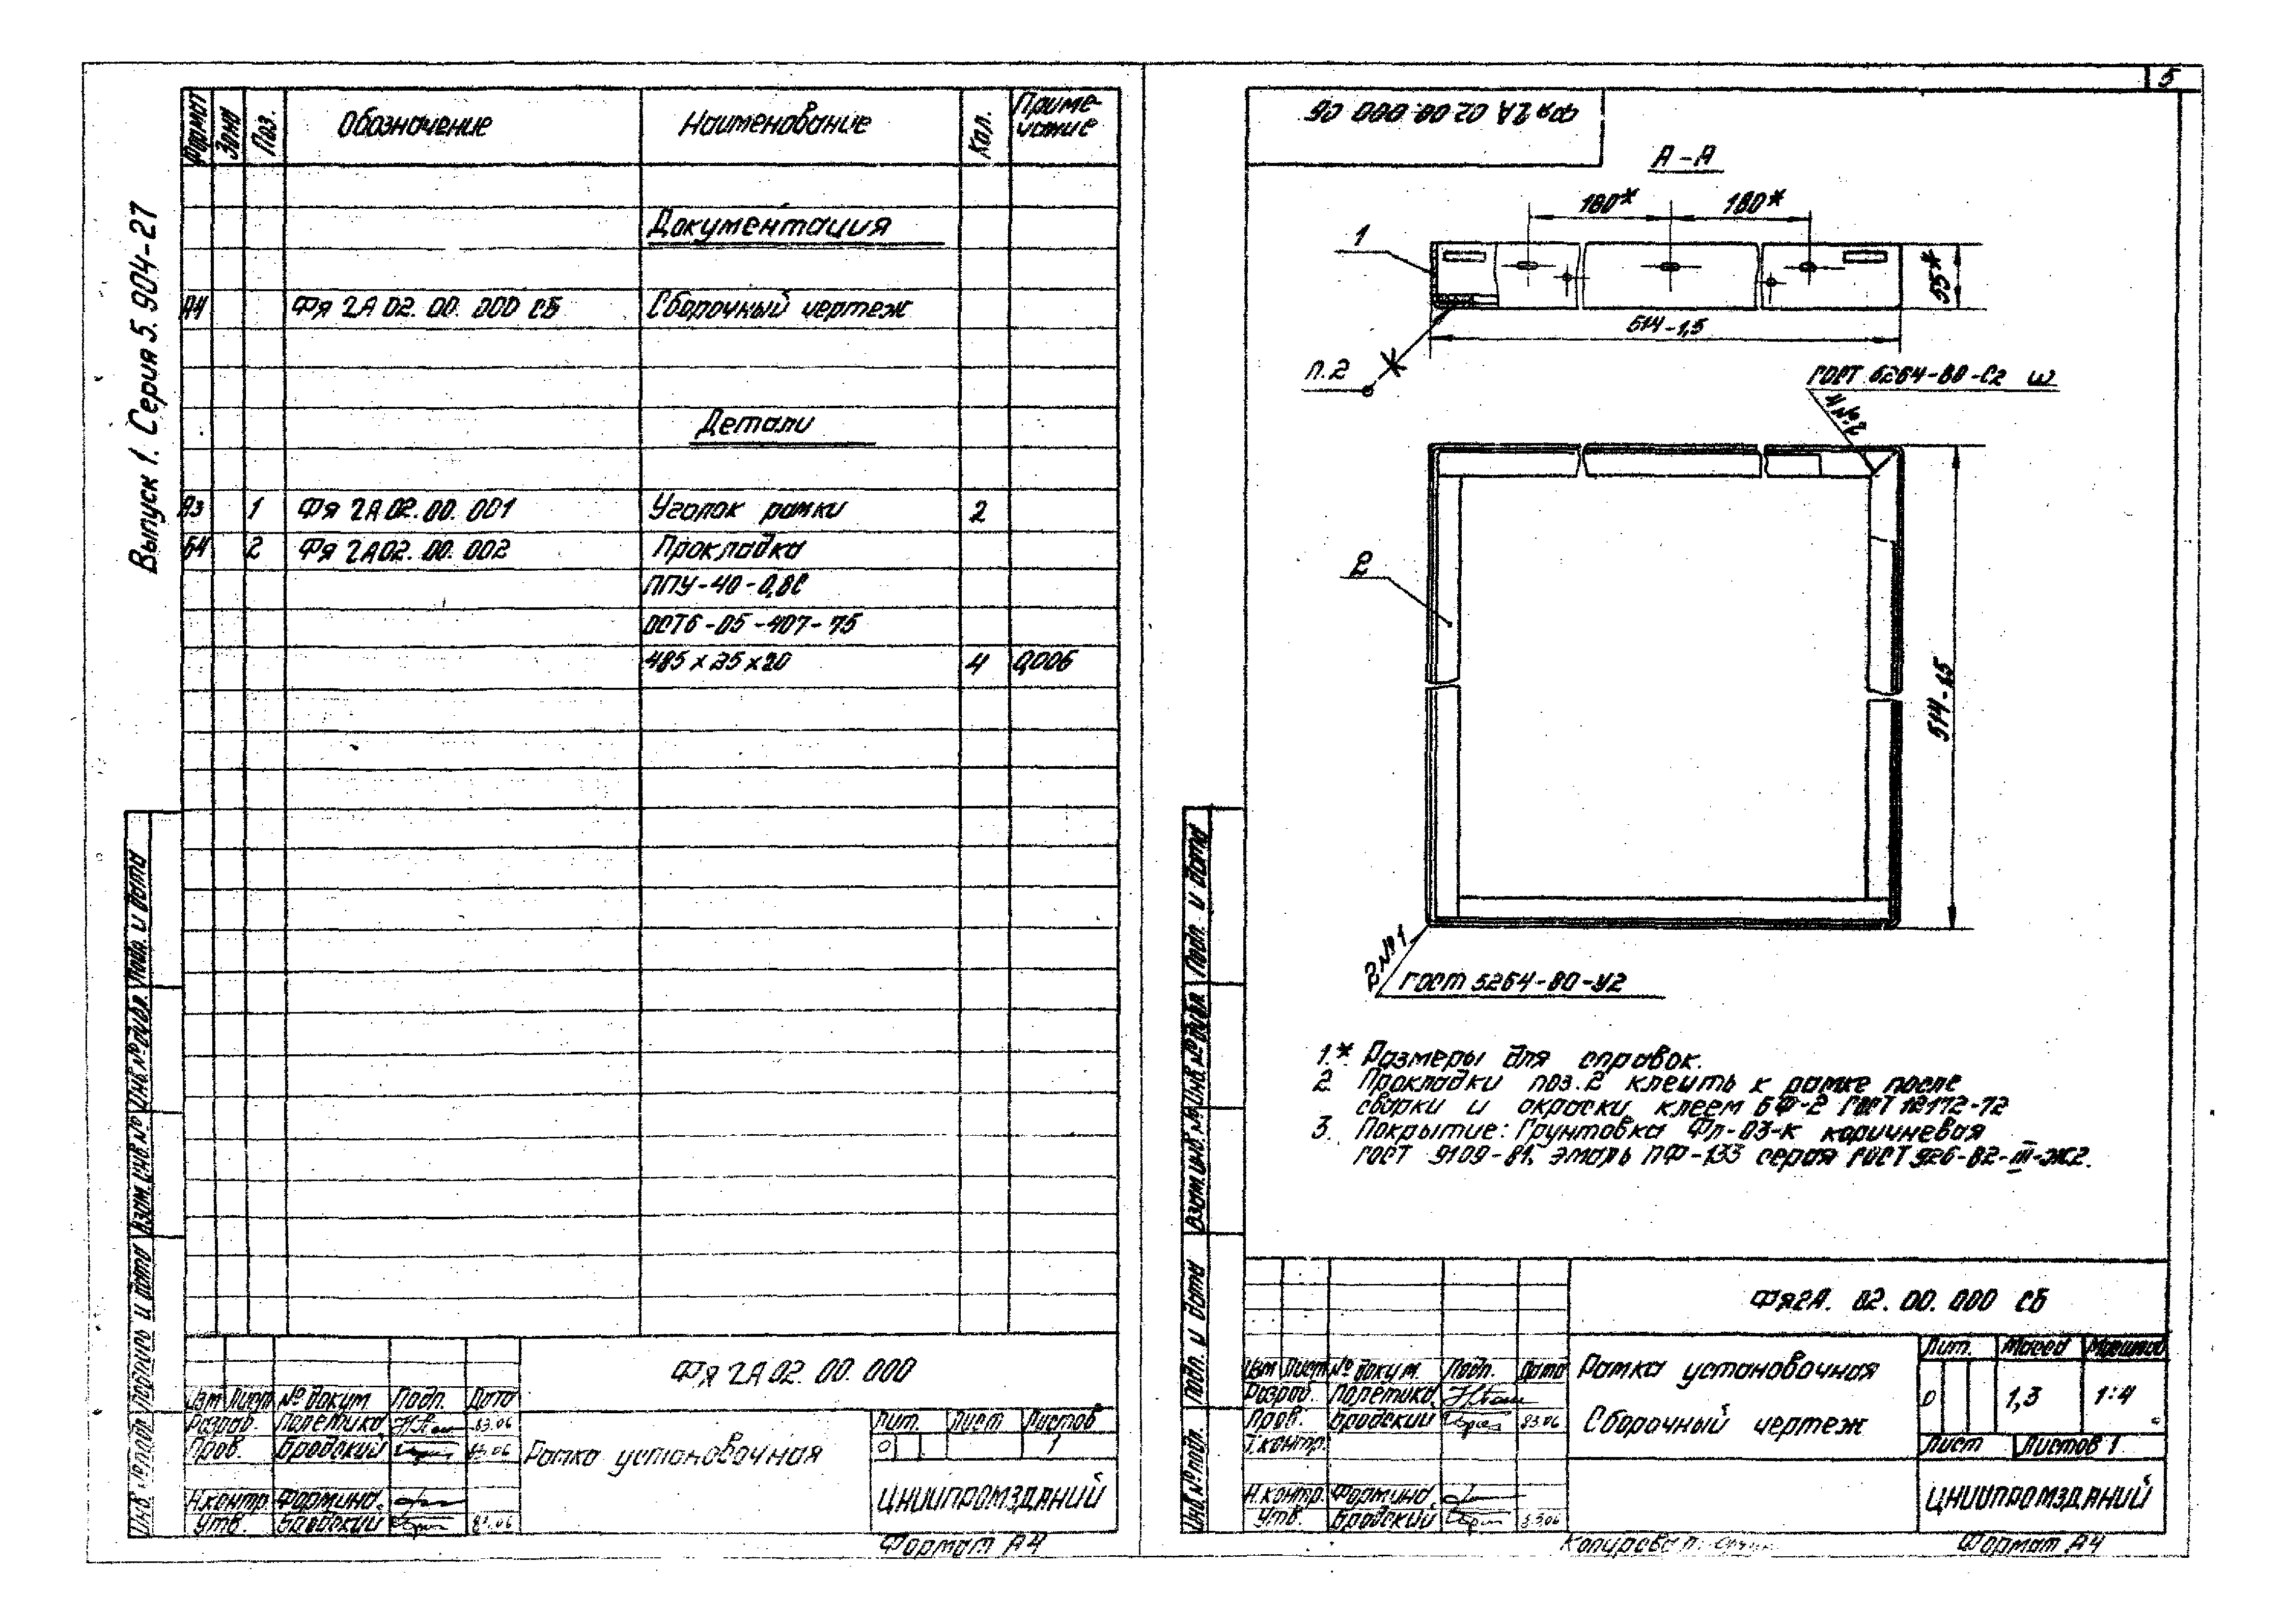 Выпуск 1. Серия 5.904-27
Формат Зона Поз. Обозначение Наименование Кол. Приме-
чание
Документация
А4 Фя 2А 02. 00. 000 СБ Сборочный чертеж
Детали
А3 1 Фя 2А 02. 00. 001 Уголок рамки 2
Б4 2 Фя 2А 02. 00. 002 Прокладка
ППУ-40-0,8С
ОСТ6-05-407-75
485 х 35 х 20 4 0,006
Инв. № подл. Подпись и дата Взам. инв. № Инв. № дубл. Подп. и дата
Фя 2А 02. 00. 000
Изм Лист № докум. Подп. Дата
Разраб. Полетика 83.06
Пров. Бродский 83.06
Н.контр. Формина
Утв. Бродский 83.06
Рамка установочная
Лит. Лист Листов
О 1
ЦНИИПРОМЗДАНИЙ
Формат А4
5
Фя 2А 02. 00. 000 СБ
А-А
180* 180*
1
55*
514-1,5
п.2
ГОСТ 5264-80-С2 ш
4 №2
2
514-1,5
2 №1
ГОСТ 5264-80-У2
1.* Размеры для справок.
2. Прокладки поз. 2 клеить к рамке после
сварки и окраски клеем БФ-2 ГОСТ 12172-72
3. Покрытие: Грунтовка Фл-03-к коричневая
ГОСТ 9109-81, эмаль ПФ-133 серая ГОСТ 926-82-III-Ж2.
Инв. № подл. Подп. и дата Взам. инв. № Инв. № дубл. Подп. и дата
Фя2А. 02. 00. 000 СБ
Изм Лист № докум. Подп. Дата
Разраб. Полетика
Пров. Бродский 83.06
Т.контр.
Н.контр. Формина
Утв. Бродский 83.06
Рамка установочная
Сборочный чертеж
Лит. Масса Масштаб
О 1,3 1:4
Лист Листов 1
ЦНИИПРОМЗДАНИЙ
Копировал:
Формат А4